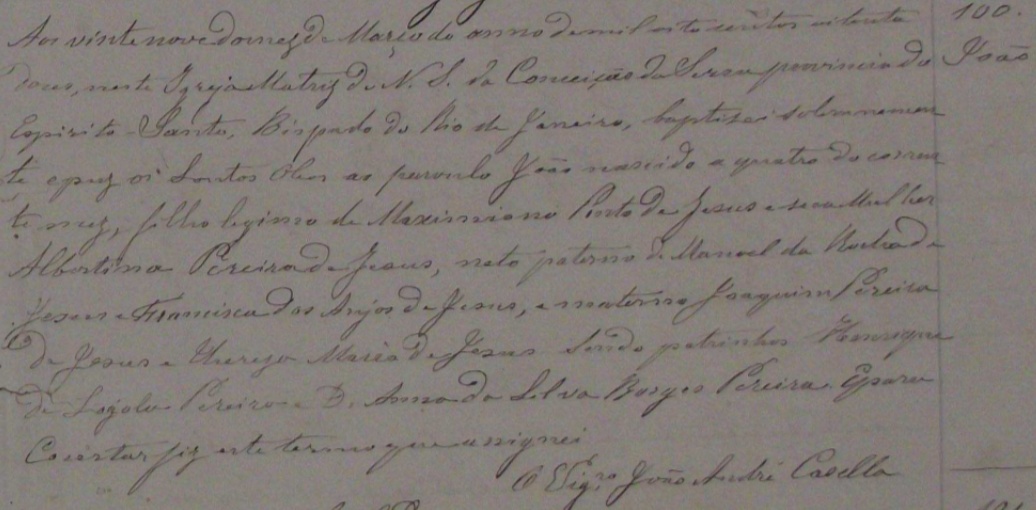 Aos vinte nove do mez de Março do anno de mil oito centos oitenta
dous, neste Igreja Matriz de N. S. da Conceição da Serra provincia do
Espirito-Santo, Bispado do Rio de Janeiro, baptisei solemnemen
te e puz os Santos Oleos ao parvulo João nascido a quatro do corren
te mez, filho legimo de Maximiano Pinto de Jesus e sua Mulher
Albertina Pereira de Jesus, neto paterno de Manoel da Rocha de
Jesus e Francisca dos Anjos de Jesus, e materno Joaquim Pereira
de Jesus e Thereza Maria de Jesus Sendo padrinhos Henrique
de Loyola Pereira e D. Anna da Silva Borges Pereira. E para
Constar fiz este termo que assignei
O Vigro João André Casella
100.
João